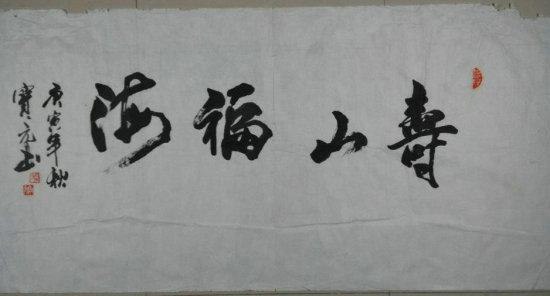 壽山福海
庚寅年秋
寶元書